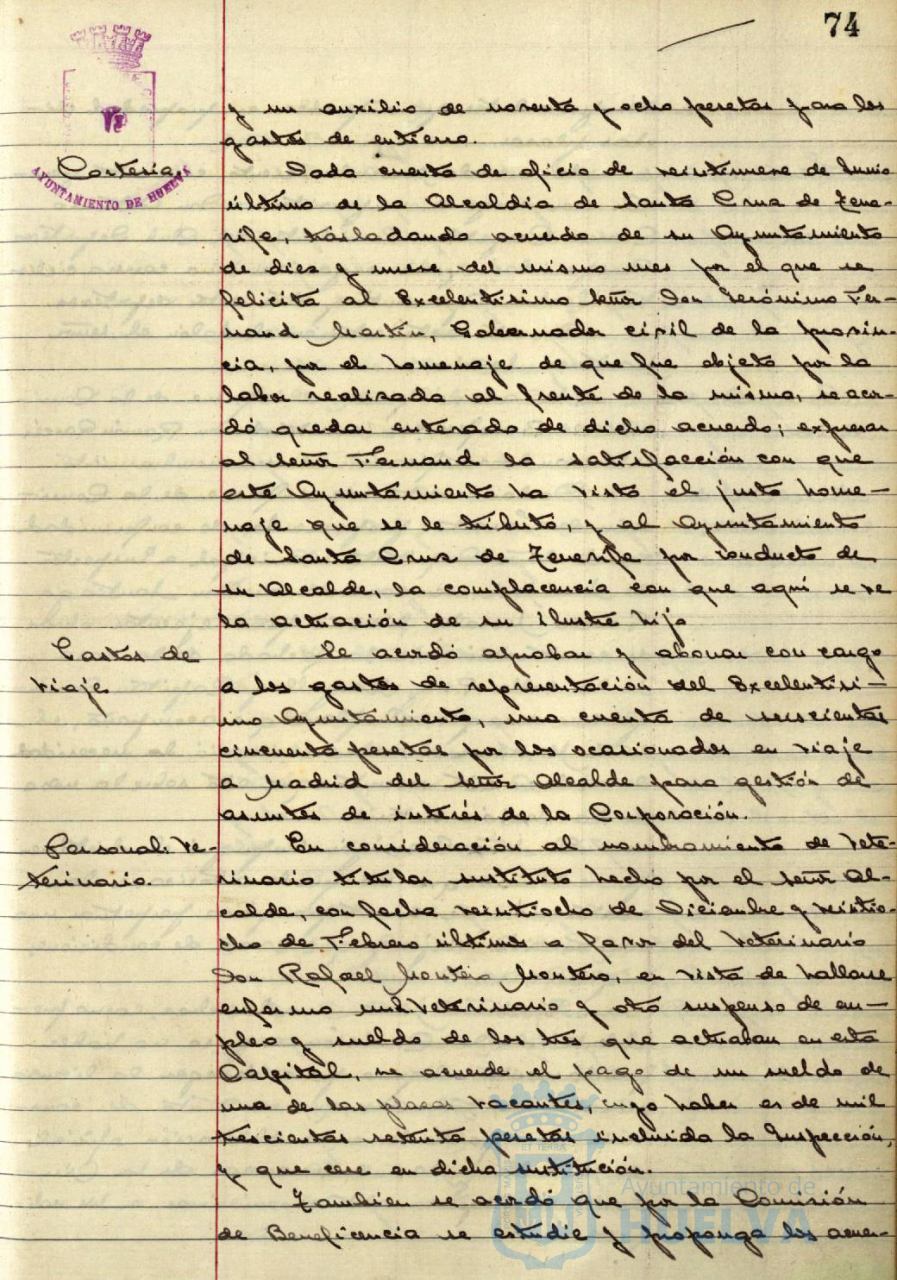 74
y un auxilio de noventa y ocho pesetas para los
gastos de entierro.
Cortesía,
AYUNTAMIENTO DE HUELVA
Dada cuenta de oficio de veintinueve de Junio
último de la Alcaldía de Santa Cruz de Tene-
rife, trasladando acuerdo de su Ayuntamiento
de diez y nueve del mismo mes por el que se
felicita al Excelentísimo Señor Don Gerónimo Fer-
nand Martín, Gobernador civil de la provin-
cia, por el homenaje de que fue objeto por la
labor realizada al frente de la misma, se acor-
dó quedar enterado de dicho acuerdo; expresar
al Señor Fernand la satisfacción con que
este Ayuntamiento ha visto el justo home-
naje que se le tributó, y al Ayuntamiento
de Santa Cruz de Tenerife por conducto de
su Alcalde, la complacencia con que aquí se ve
la actuación de su ilustre hijo
Gastos de
viaje
Se acordó aprobar y abonar con cargo
a los gastos de representación del Excelentísi-
mo Ayuntamiento, una cuenta de seiscientas
cincuenta pesetas por los ocasionados en viaje
a Madrid del Señor Alcalde para gestión de
asuntos de interés de la Corporación.
Personal: Ve-
terinario.
En consideración al nombramiento de Vete-
rinario titular sustituto hecho por el Señor Al-
calde, con fecha veintiocho de Diciembre y veintio-
cho de Febrero últimos a favor del Veterinario
Don Rafael Montero Montero, en vista de hallarse
enfermo un Veterinario y otro suspenso de em-
pleo y sueldo de los tres que actuaban en esta
Capital, se acuerde el pago de un sueldo de
una de las plazas vacantes, cuyo haber es de mil
trescientas setenta pesetas incluida la Inspección,
y que cese en dicha sustitución.
Tambien se acordó que por la Comisión
de Beneficencia se estudie y proponga los acuer-
Ayuntamiento de
HUELVA